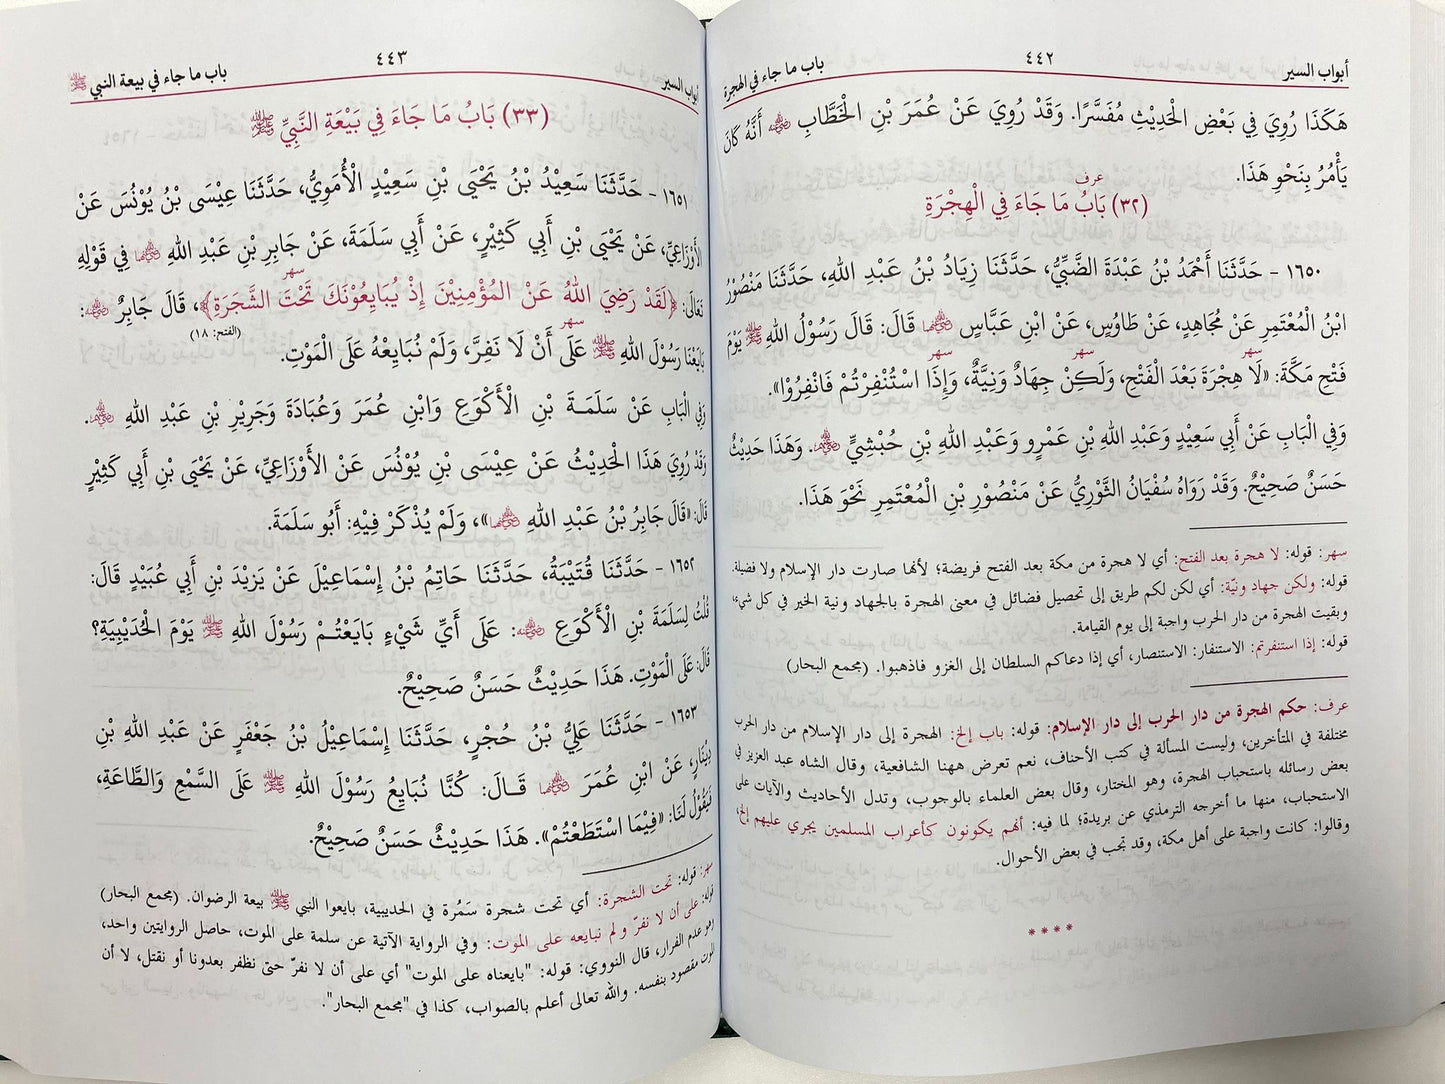 أبواب السير ٤٤٢ باب ما جاء في الهجرة
هَكَذَا رُوِيَ فِي بَعْضِ الْحَدِيْثِ مُفَسَّرًا. وَقَدْ رُوِيَ عَنْ عُمَرَ بْنِ الْخَطَّابِ ﵁ أَنَّهُ كَانَ
يَأْمُرُ بِنَحْوِ هَذَا.
عرف
(٣٢) بَابُ مَا جَاءَ فِي الْهِجْرَةِ
١٦٥٠ - حَدَّثَنَا أَحْمَدُ بْنُ عَبْدَةَ الضَّبِّيُّ، حَدَّثَنَا زِيَادُ بْنُ عَبْدِ اللهِ، حَدَّثَنَا مَنْصُوْرُ
ابْنُ الْمُعْتَمِرِ عَنْ مُجَاهِدٍ، عَنْ طَاوُسٍ، عَنِ ابْنِ عَبَّاسٍ ﵄ قَالَ: قَالَ رَسُوْلُ اللهِ ﷺ يَوْمَ
سهر سهر سهر
فَتْحِ مَكَّةَ: «لَا هِجْرَةَ بَعْدَ الْفَتْحِ، وَلَكِنْ جِهَادٌ وَنِيَّةٌ، وَإِذَا اسْتُنْفِرْتُمْ فَانْفِرُوْا».
وَفِي الْبَابِ عَنْ أَبِي سَعِيْدٍ وَعَبْدِ اللهِ بْنِ عَمْرٍو وَعَبْدِ اللهِ بْنِ حُبْشِيٍّ ﵃. وَهَذَا حَدِيْثٌ
حَسَنٌ صَحِيْحٌ. وَقَدْ رَوَاهُ سُفْيَانُ الثَّوْرِيُّ عَنْ مَنْصُوْرِ بْنِ الْمُعْتَمِرِ نَحْوَ هَذَا.
سهر: قوله: لا هجرة بعد الفتح: أي لا هجرة من مكة بعد الفتح فريضة؛ لأنها صارت دار الإسلام ولا فضيلة.
قوله: ولكن جهاد ونيّة: أي لكن لكم طريق إلى تحصيل فضائل في معنى الهجرة بالجهاد ونية الخير في كل شيء،
وبقيت الهجرة من دار الحرب واجبة إلى يوم القيامة.
قوله: إذا استنفرتم: الاستنفار: الاستنصار، أي إذا دعاكم السلطان إلى الغزو فاذهبوا. (مجمع البحار)
عرف: حكم الهجرة من دار الحرب إلى دار الإسلام: قوله: باب إلخ: الهجرة إلى دار الإسلام من دار الحرب
مختلفة في المتأخرين، وليست المسألة في كتب الأحناف، نعم تعرض ههنا الشافعية، وقال الشاه عبد العزيز في
بعض رسائله باستحباب الهجرة، وهو المختار، وقال بعض العلماء بالوجوب، وتدل الأحاديث والآيات على
الاستحباب، منها ما أخرجه الترمذي عن بريدة؛ لما فيه: أنهم يكونون كأعراب المسلمين يجري عليهم إلخ،
وقالوا: كانت واجبة على أهل مكة، وقد تجب في بعض الأحوال.
****
أبواب السير ٤٤٣ باب ما جاء في بيعة النبي ﷺ
(٣٣) بَابُ مَا جَاءَ فِي بَيْعَةِ النَّبِيِّ ﷺ
١٦٥١ - حَدَّثَنَا سَعِيْدُ بْنُ يَحْيَى بْنِ سَعِيْدٍ الْأُمَوِيُّ، حَدَّثَنَا عِيْسَى بْنُ يُوْنُسَ عَنْ
الْأَوْزَاعِيِّ، عَنْ يَحْيَى بْنِ أَبِي كَثِيْرٍ، عَنْ أَبِي سَلَمَةَ، عَنْ جَابِرِ بْنِ عَبْدِ اللهِ ﵄ فِي قَوْلِهِ
سهر
تَعَالَى: ﴿لَقَدْ رَضِيَ اللهُ عَنِ الْمُؤْمِنِيْنَ إِذْ يُبَايِعُوْنَكَ تَحْتَ الشَّجَرَةِ﴾، قَالَ جَابِرٌ ﵁:
سهر (الفتح: ١٨)
بَايَعْنَا رَسُوْلَ اللهِ ﷺ عَلَى أَنْ لَا نَفِرَّ، وَلَمْ نُبَايِعْهُ عَلَى الْمَوْتِ.
وَفِي الْبَابِ عَنْ سَلَمَةَ بْنِ الْأَكْوَعِ وَابْنِ عُمَرَ وَعُبَادَةَ وَجَرِيْرِ بْنِ عَبْدِ اللهِ ﵃.
وَقَدْ رُوِيَ هَذَا الْحَدِيْثُ عَنْ عِيْسَى بْنِ يُوْنُسَ عَنْ الْأَوْزَاعِيِّ، عَنْ يَحْيَى بْنِ أَبِي كَثِيْرٍ
قَالَ: «قَالَ جَابِرُ بْنُ عَبْدِ اللهِ ﵄»، وَلَمْ يُذْكَرْ فِيْهِ: أَبُو سَلَمَةَ.
١٦٥٢ - حَدَّثَنَا قُتَيْبَةُ، حَدَّثَنَا حَاتِمُ بْنُ إِسْمَاعِيْلَ عَنْ يَزِيْدَ بْنِ أَبِي عُبَيْدٍ قَالَ:
قُلْتُ لِسَلَمَةَ بْنِ الْأَكْوَعِ ﵁: عَلَى أَيِّ شَيْءٍ بَايَعْتُمْ رَسُوْلَ اللهِ ﷺ يَوْمَ الْحُدَيْبِيَةِ؟
قَالَ: عَلَى الْمَوْتِ. هَذَا حَدِيْثٌ حَسَنٌ صَحِيْحٌ.
١٦٥٣ - حَدَّثَنَا عَلِيُّ بْنُ حُجْرٍ، حَدَّثَنَا إِسْمَاعِيْلُ بْنُ جَعْفَرٍ عَنْ عَبْدِ اللهِ بْنِ
دِيْنَارٍ، عَنْ ابْنِ عُمَرَ ﵄ قَالَ: كُنَّا نُبَايِعُ رَسُوْلَ اللهِ ﷺ عَلَى السَّمْعِ وَالطَّاعَةِ،
فَيَقُوْلُ لَنَا: «فِيْمَا اسْتَطَعْتُمْ». هَذَا حَدِيْثٌ حَسَنٌ صَحِيْحٌ.
سهر: قوله: تحت الشجرة: أي تحت شجرة سَمُرة في الحديبية، بايعوا النبي ﷺ بيعة الرضوان. (مجمع البحار)
قوله: على أن لا نفرّ ولم نبايعه على الموت: وفي الرواية الآتية عن سلمة على الموت، حاصل الروايتين واحد،
وهو عدم الفرار، قال النووي: قوله: "بايعناه على الموت" أي على أن لا نفرّ حتى نظفر بعدونا أو نقتل، لا أن
الموت مقصود بنفسه. والله تعالى أعلم بالصواب، كذا في "مجمع البحار".